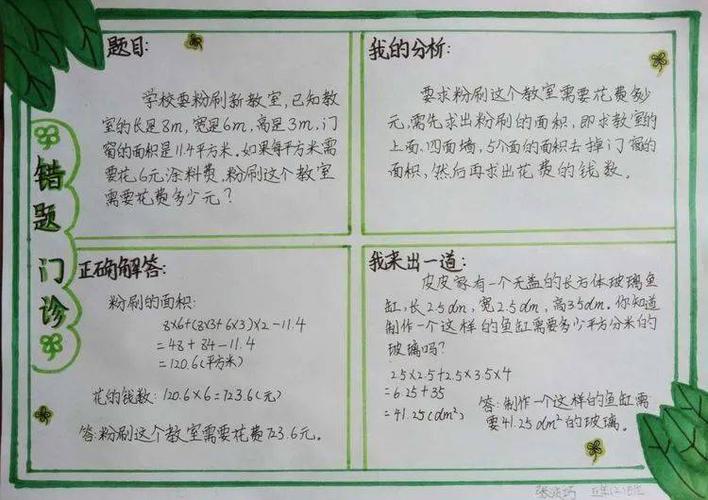 错题门诊
题目:
学校要粉刷新教室,已知教
室的长是8m,宽是6m,高是3m,门
窗的面积是11.4平方米。如果每平方米需
要花6元涂料费,粉刷这个教室
需要花费多少元?
我的分析:
要求粉刷这个教室需要花费多少
元,需先求出粉刷的面积,即求教室的
上面、四面墙,5个面的面积去掉门窗的
面积,然后再求出花费的钱数。
正确解答:
粉刷的面积:
8×6+(8×3+6×3)×2-11.4
=48+84-11.4
=120.6(平方米)
花的钱数:120.6×6=723.6(元)
答:粉刷这个教室需要花费723.6元。
我来出一道:
皮皮家有一个无盖的长方体玻璃鱼
缸,长2.5dm,宽2.5dm,高3.5dm。你知道
制作一个这样的鱼缸需要多少平方分米的
玻璃吗?
2.5×2.5+2.5×3.5×4
=6.25+35
=41.25(dm²)
答:制作一个这样的鱼缸需
要41.25dm²的玻璃。